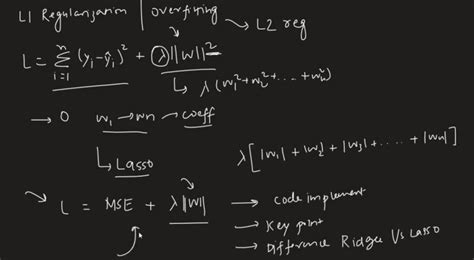 L1 Regularization | Overfitting
→ L2 reg
L = Σ_{i=1}^{n} (y_i - ŷ_i)² + λ||w||²
↳ λ(w₁² + w₂² + .... + wₙ²)
→ 0 w₁ → wn → coeff
↳ Lasso
λ[|w₁| + |w₂| + |w₃| + .... + |wn|]
L = MSE + λ||w|| → Code implement
→ Key point
→ Difference Ridge Vs Lasso